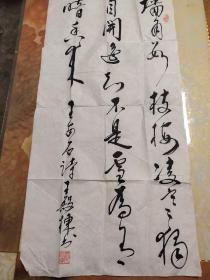 墙角数枝梅凌寒独
自開遥知不是雪為有
暗香来 王安石诗 王